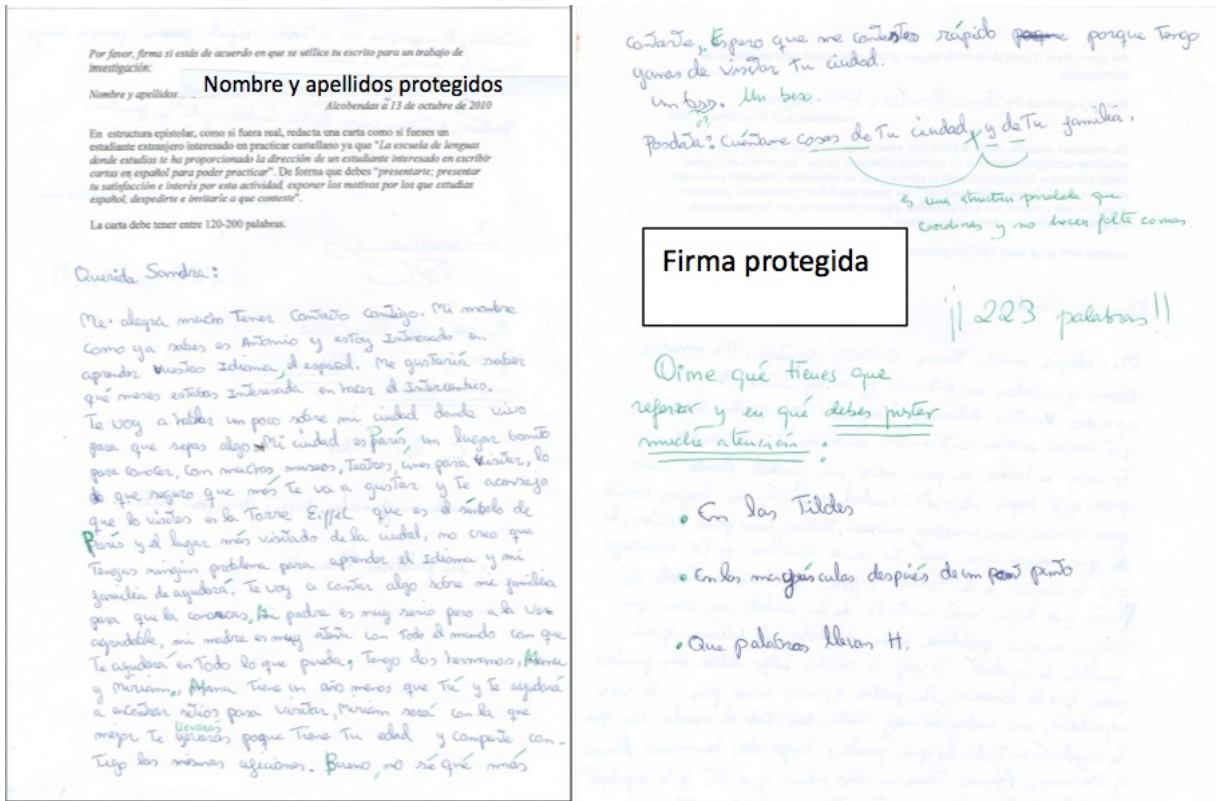 Por favor, firma si estás de acuerdo en que se utilice tu escrito para un trabajo de
investigación:
Nombre y apellidos Nombre y apellidos protegidos
Alcobendas a 13 de octubre de 2010
En estructura epistolar, como si fuera real, redacta una carta como si fueses un
estudiante extranjero interesado en practicar castellano ya que "La escuela de lenguas
donde estudias te ha proporcionado la dirección de un estudiante interesado en escribir
cartas en español para poder practicar". De forma que debes "presentarte; presentar
tu satisfacción e interés por esta actividad, exponer los motivos por los que estudias
español, despedirte e invitarle a que conteste".
La carta debe tener entre 120-200 palabras.
Querida Sandra:
Me alegra mucho Tener Contacto contigo. Mi nombre
como ya sabes es Antonio y estoy Interesado en
aprender vuestro Idioma, el español. Me gustaría saber
qué meses estabas Interesada en hacer el Intercambio.
Te voy a hablar un poco sobre mi ciudad donde vivo
para que sepas algo. Mi ciudad es París, un lugar bonito
para conocer, con muchos museos, Teatros, cines para visitar, lo
que seguro que más Te va a gustar y Te aconsejo
que lo visites es la Torre Eiffel que es el símbolo de
París y el lugar más visitado de la ciudad, no creo que
Tengas ningún problema para aprender el Idioma y mi
familia de ayudará. Te voy a contar algo sobre mi familia
para que la conozcas, Mi padre es muy serio pero a la vez
agradable, mi madre es muy atenta con Todo el mundo con que
Te ayudará en Todo lo que pueda. Tengo dos hermanos,
y Miriam, Tiene un año menos que Tú y Te ayudará
a encontrar sitios para visitar, Miriam será con la que
llevarás
mejor Te poque Tiene Tu edad y comparte con-
Tigo las mismas aficiones. Bueno, no sé qué más
contarte, Espero que me contestes rápido porque Tengo
ganas de visitar Tu ciudad.
Un beso. Un beso
Posdata: Cuéntame cosas de Tu ciudad, y de Tu familia.
es una structura que
coordinas y no hacen falta comas.
Firma protegida
¡¡ 223 palabras!!
Dime qué tienes que
reforzar y en qué debes prestar
mucha atención:
• En las Tildes
• En las mayúsculas después de un punto
• Que palabras llevan H.